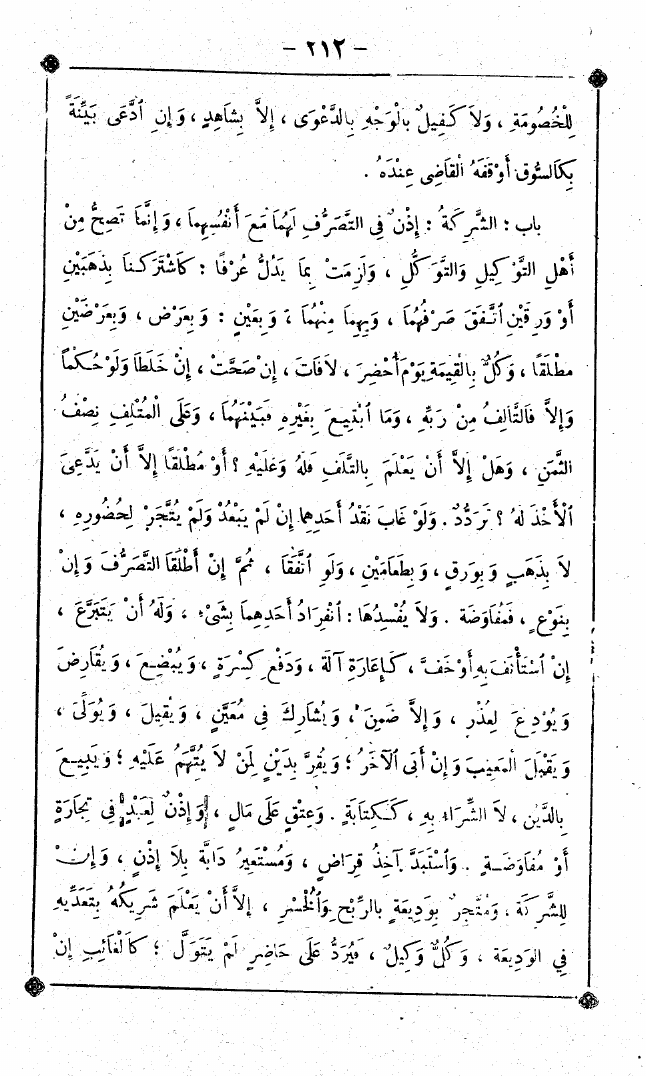 - ٢١٢ -
لِلْخُصُومَةِ ، وَلاَ كَفِيلٌ بالْوَجْهِ بِالدَّعْوَى ، إِلاَّ بِشَاهِدٍ ، وَإِنِ ٱدَّعَى بَيِّنَةً
بِكَالسُّوقِ أَوْقَفَهُ الْقَاضِى عِنْدَهُ .
باب : الشَّرِكَةُ : إِذْنٌ فِى التَّصَرُّفِ لَهُمَا مَعَ أَنْفُسِهِمَا ، وَإِنَّمَا تَصِحُّ مِنْ
أَهْلِ التَّوْكِيلِ وَالتَّوَكُّلِ ، وَلَزِمَتْ بِمَا يَدُلُّ عُرْفًا : كَاشْتَرَكْنَا بِذَهَبَيْنِ
أَوْ وَرِقَيْنِ ٱتَّفَقَ صَرْفُهُمَا ، وَبِهِمَا مِنْهُمَا ، وَبِعَيْنٍ : وَبِعَرْضٍ ، وَبِعَرْضَيْنِ
مُطْلَقًا ، وَكُلٌّ بِالْقِيمَةِ يَوْمَ أُحْضِرَ ، لاَ فَاتَ ، إِنْ صَحَّتْ ، إِنْ خَلَطَا وَلَوْ حُكْمًا
وَإِلاَّ فَالتَّالِفُ مِنْ رَبِّهِ ، وَمَا ٱبْتِيعَ بِغَيْرِهِ فَبَيْنَهُمَا ، وَعَلَى الْمُتْلِفِ نِصْفُ
الثَّمَنِ ، وَهَلْ إِلاَّ أَنْ يَعْلَمَ بِالتَّلَفِ فَلَهُ وَعَلَيْهِ ؟ أَوْ مُطْلَقًا إِلاَّ أَنْ يَدَّعِىَ
الْأَخْذَ لَهُ ؟ تَرَدُّدٌ . وَلَوْ غَابَ نَقْدُ أَحَدِهِمَا إِنْ لَمْ يَبْعُدْ وَلَمْ يُتَّجَرْ لِحُضُورِهِ ،
لاَ بِذَهَبٍ وَبِوَرِقٍ ، وَبِطَعَامَيْنِ ، وَلَوِ ٱتَّفَقَا ، ثُمَّ إِنْ أَطْلَقَا التَّصَرُّفَ وَإِنْ
بِنَوْعٍ ، فَمُفَاوَضَةٌ . وَلاَ يُفْسِدُهَا : ٱنْفِرَادُ أَحَدِهِمَا بِشَىْءٍ ، وَلَهُ أَنْ يَتَبَرَّعَ ،
إِنْ ٱسْتَأْلَفَ بِهِ أَوْ خَفَّ ، كَإِعَارَةِ آلَةٍ ، وَدَفْعِ كِسْرَةٍ ، وَيُبْضِعَ ، وَيُقَارِضَ
وَيُودِعَ لِعُذْرٍ ، وَإِلاَّ ضَمِنَ ، وَيُشَارِكَ فِى مُعَيَّنٍ ، وَيُقِيلَ ، وَيُوَلِّىَ ،
وَيَقْبَلَ الْمَعِيبَ وَإِنْ أَبَى الآخَرُ ؛ وَيُقِرَّ بِدَيْنٍ لِمَنْ لاَ يُتَّهَمُ عَلَيْهِ ؛ وَيَبِيعَ
بِالدَّيْنِ ، لاَ الشِّرَاءُ بِهِ ، كَكِتَابَةٍ . وَعِتْقٍ عَلَى مَالٍ ، وَإِذْنٌ لِعَبْدٍ فِى تِجَارَةٍ
أَوْ مُفَاوَضَةٍ . وَٱسْتَبَدَّ آخِذُ قِرَاضٍ ، وَمُسْتَعِيرُ دَابَّةٍ بِلاَ إِذْنٍ ، وَإِنْ
لِلشَّرِكَةِ ، وَمُتَّجِرٌ بِوَدِيعَةٍ بِالرِّبْحِ وَالْخُسْرِ ، إِلاَّ أَنْ يَعْلَمَ شَرِيكُهُ بِتَعَدِّيهِ
فِى الْوَدِيعَةِ ، وَكُلٌّ وَكِيلٌ ، فَيُرَدُّ عَلَى حَاضِرٍ لَمْ يَتَوَلَّ ؛ كَالْغَائِبِ إِنْ